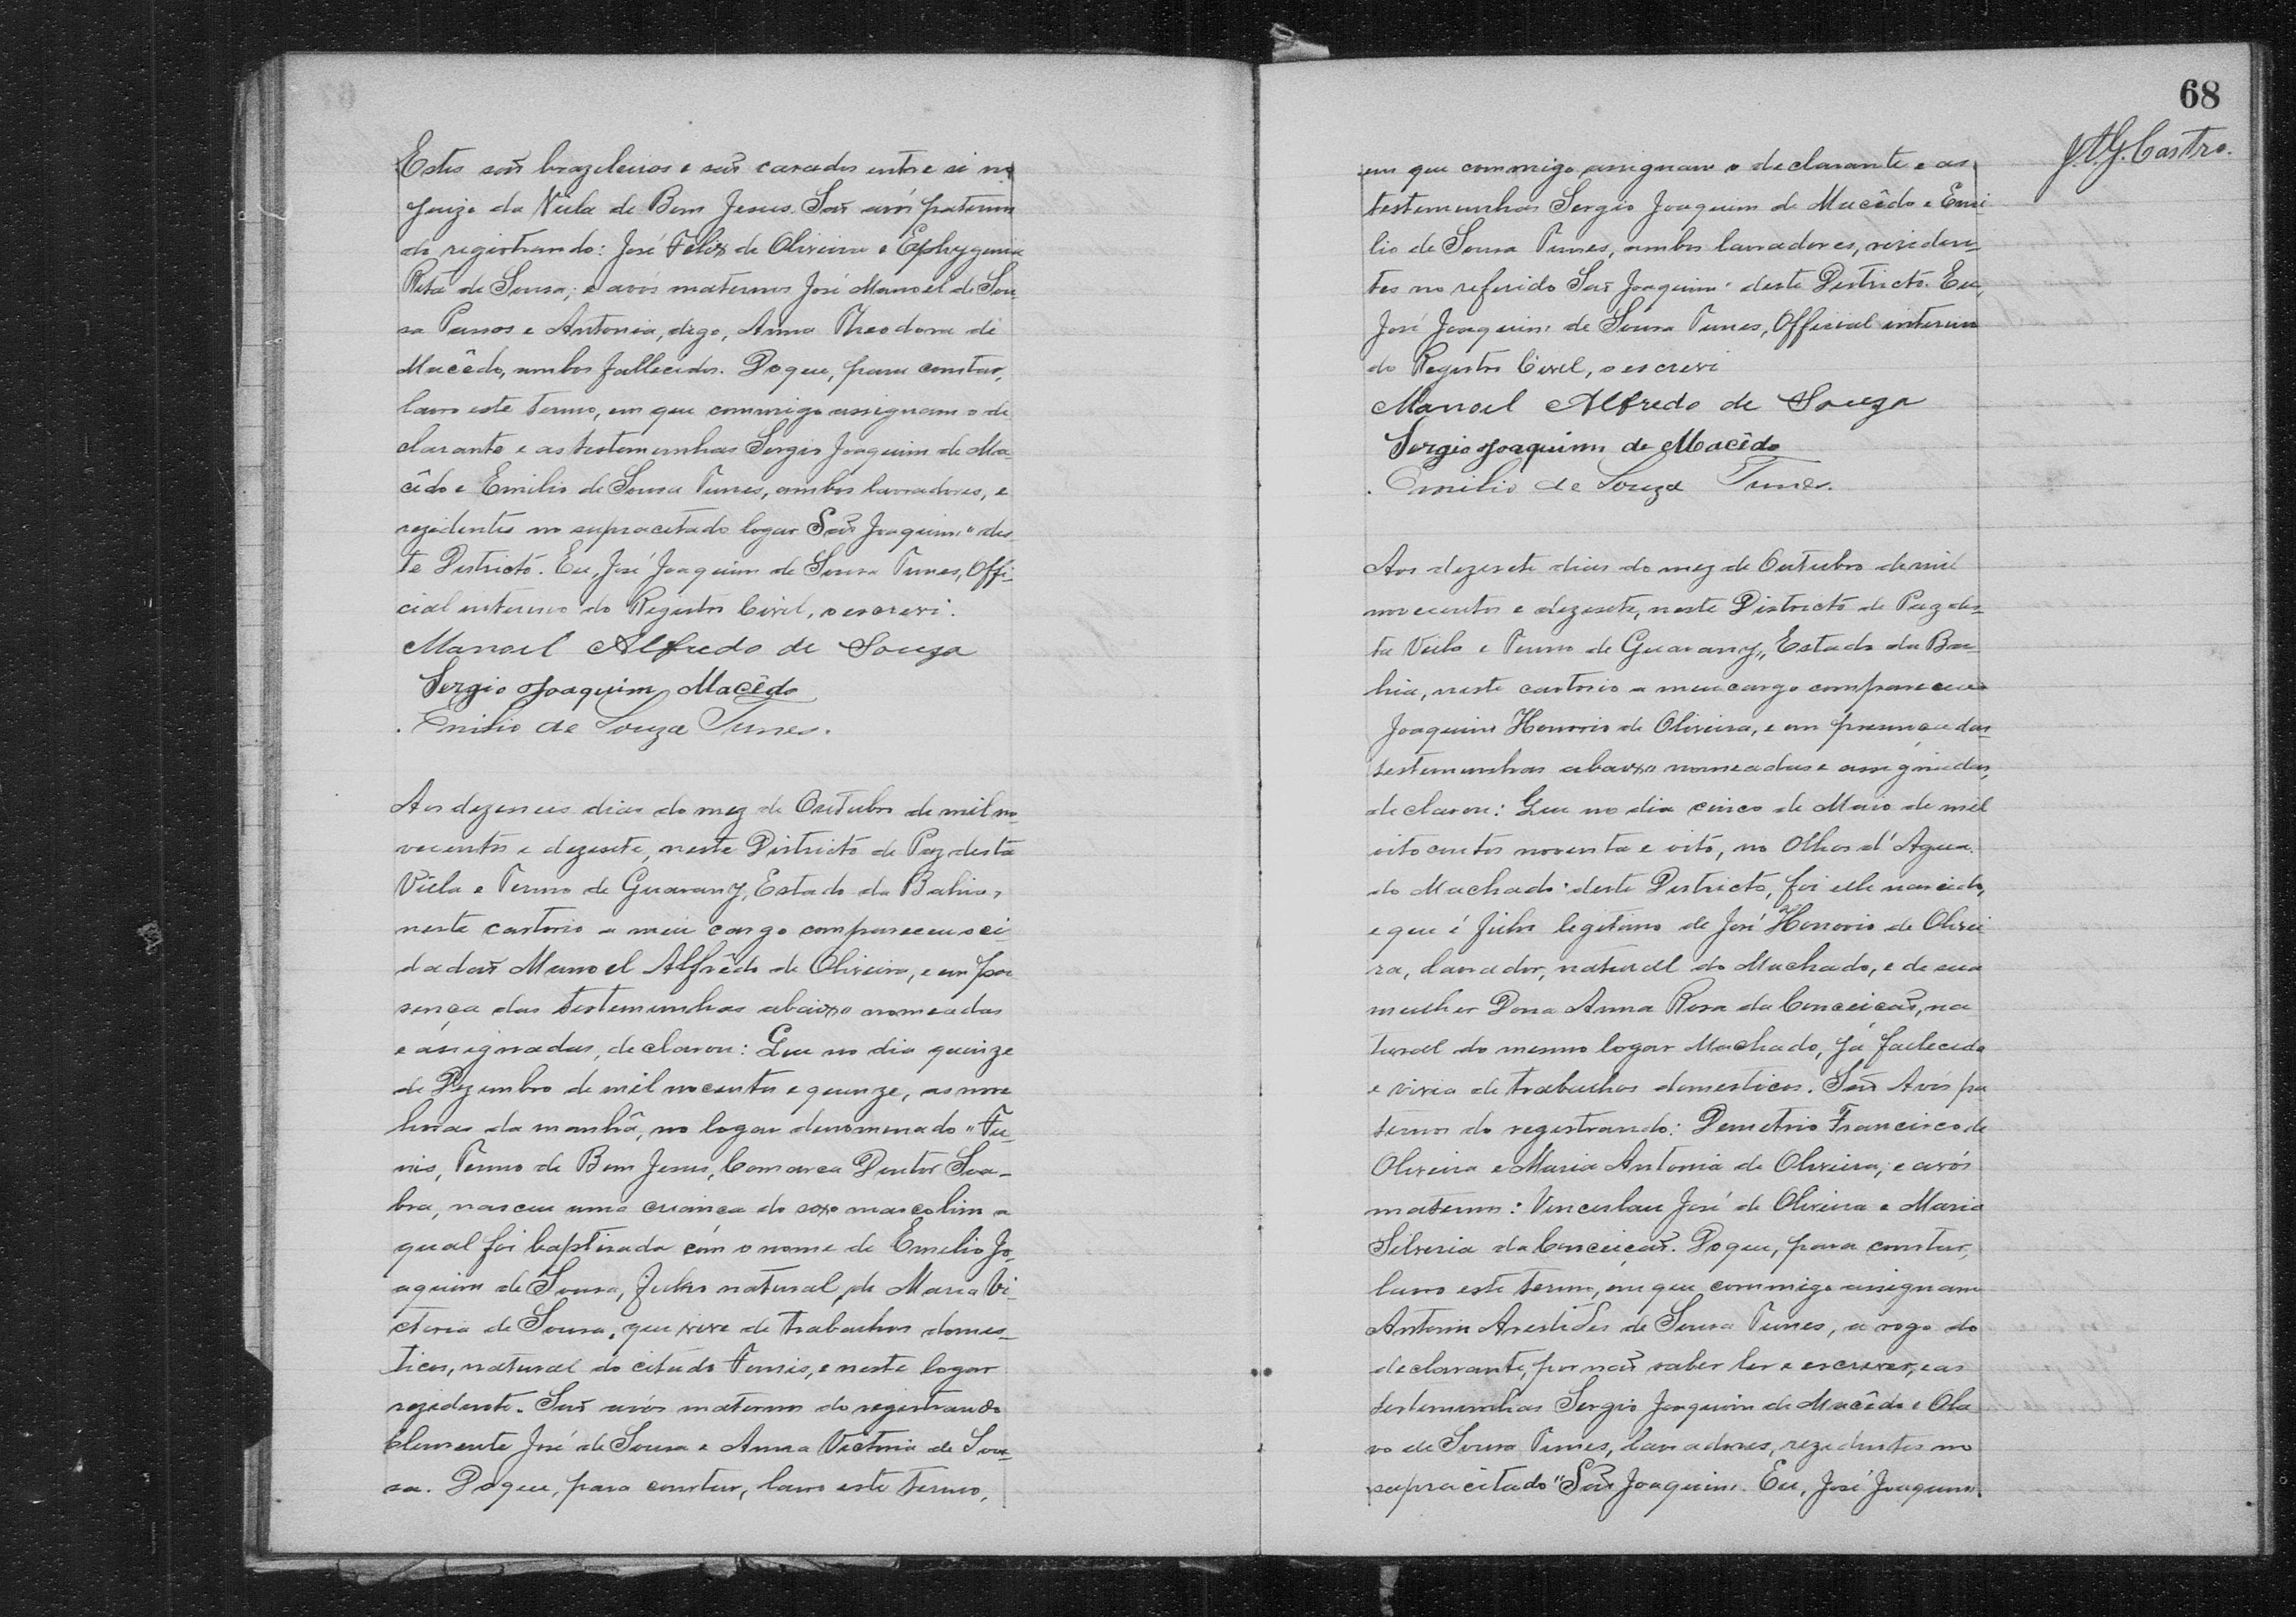 Estes são brazileiros e são casados entre si no
Juizo da Villa de Bom Jesus. São avós paternos
do registrando: José Felix de Oliveira e Ephygenia
Rita de Sousa; e avós maternos José Manoel de Sou-
sa Passos e Antonia, digo, Anna Theodora de
Macêdo, ambos fallecidos. Do que, para constar,
lavro este termo, em que commigo assignam o de
clarante e as testemunhas Sergio Joaquim de Ma-
cêdo e Emilio de Sousa Tunes, ambos lavradores, e
rezidentes no supracitado logar São Joaquim" des-
te Districto. Eu, José Joaquim de Sousa Tunes, Offi-
cial interino do Registro Civil, o escrevi.
Manoel Alfredo de Souza
Sergio Joaquim Macêdo
Emilio de Souza Tunes.
Aos dezeseis dias do mez de Outubro de mil no-
vecentos e dezesete, neste Districto de Paz desta
Villa e Termo de Guarany, Estado da Bahia,
neste cartorio a meu cargo compareceu o ci-
dadão Manoel Alfrêdo de Oliveira, e em pre
sença das testemunhas abaixo nomeadas
e assignadas, declarou: Que no dia quinze
de Dezembro de mil nocentos e quinze, as nove
horas da manhã, no logar denominado "Fu-
nis, Termo de Bom Jesus, Comarca Doutor Sea-
bra, nasceu uma criança do sexo mascolino a
qual foi baptisada com o nome de Emilio Jo-
aquim de Sousa, filho natural de Maria Vi-
ctoria de Sousa, que vive de trabalhos domes-
ticos, natural do citado Funis, e neste logar
rezidente. São avós maternos do registrando
Clemente José de Sousa e Anna Victoria de Sou-
sa. Do que, para constar, lavro este termo,
68
J.A.G. Castro.
em que commigo assignam o declarante e as
testemunhas Sergio Joaquim de Macêdo e Emi
lio de Sousa Tunes, ambos lavradores, residen-
tes no referido São Joaquim" deste Districto. Eu,
José Joaquim de Sousa Tunes, Official interino
do Registro Civil, o escrevi
Manoel Alfredo de Souza
Sergio Joaquim de Macêdo
Emilio de Souza Tunes.
Aos dezesete dias do mez de Outubro de mil
novecentos e dezesete, neste Districto de Paz des-
ta Villa e Termo de Guarany, Estado da Ba-
hia, neste cartorio a meu cargo compareceu
Joaquim Honorio de Oliveira, e em presença das
testemunhas abaixo nomeadas e assignadas,
declarou: Que no dia cinco de Maio de mil
oitocentos noventa e oito, no Olhos d'Agua
do Machado" deste Districto, foi elle nascido,
e que é filho legitimo de José Honorio de Olivei
ra, lavrador, natural do Machado, e de sua
mulher Dona Anna Rosa da Conceicão, na
tural do mesmo logar Machado, já fallecida
e vivia de trabalhos domesticos. São Avós pa
ternos do registrando: Demetrio Francisco de
Oliveira e Maria Antonia de Oliveira; e avós
maternos: Vencerlau José de Oliveira e Maria
Silveria da Conceição. Do que, para constar,
lavro este termo, em que commigo assignam
Antonio Arestides de Sousa Tunes, a rogo do
declarante, por não saber ler e escrever, e as
testemunhas Sergio Joaquim de Macêdo e Ola
vo de Sousa Tunes, lavradores, rezidentes no
supracitado "São Joaquim. Eu, José Joaquim